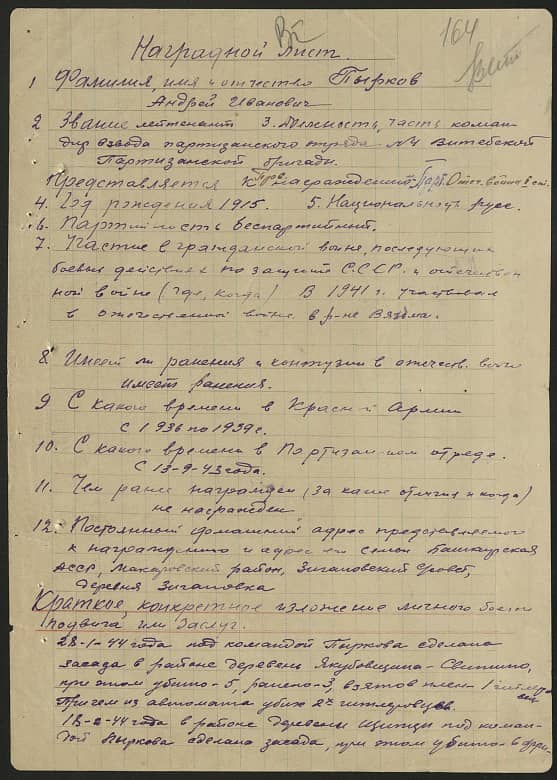 164
Наградной лист.
1 Фамилия, имя и отчество Пырков
Андрей Иванович
2 Звание лейтенант 3. Должность, часть коман-
дир взвода партизанского отряда №4 Витебской
Партизанской бригады.
Представляется к награждению Отеч. войны ст.
4. Год рождения 1915. 5. Национальность русс.
6. Партийность беспартийный.
7. Участие в гражданской войне, последующих
боевых действиях по защите СССР и отечествен
ной войне (где, когда) В 1941 г. участвовал
в отечественной войне в р-не Вязьма.
8 Имеет ли ранения и контузии в отечеств. войне
имеет ранения.
9 С какого времени в Красной Армии
с 1936 по 1939 г.
10. С какого времени в Партизанском отряде.
С 13-9-43 года.
11. Чем ранее награжден (за какие отличия и когда)
не награжден
12. Постоянный домашний адрес представляемого
к награждению и адрес его семьи Башкирская
АССР, район, Зигановский совет,
деревня Зигановка
Краткое, конкретное изложение личного боевого
подвига или заслуг.
28-1-44 года под командой Пыркова сделана
засада в районе деревень Якубовщина-
при этом убито-5, ранено-3, взято в плен-1
Причем из автомата убил 2х гитлеровцев
года в районе деревни под коман-
дой Пыркова сделана засада, при этом убито-6